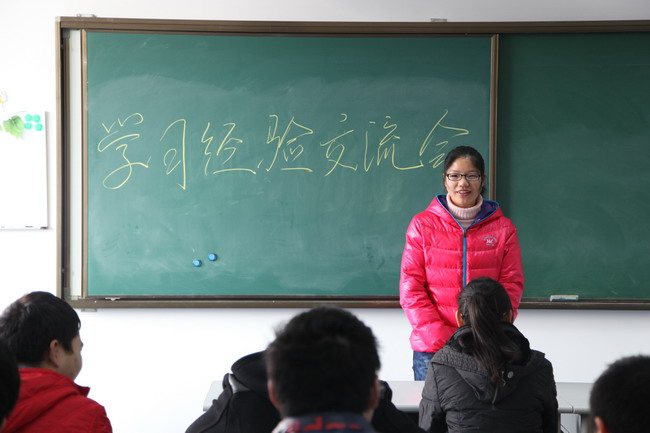 学习经验交流会